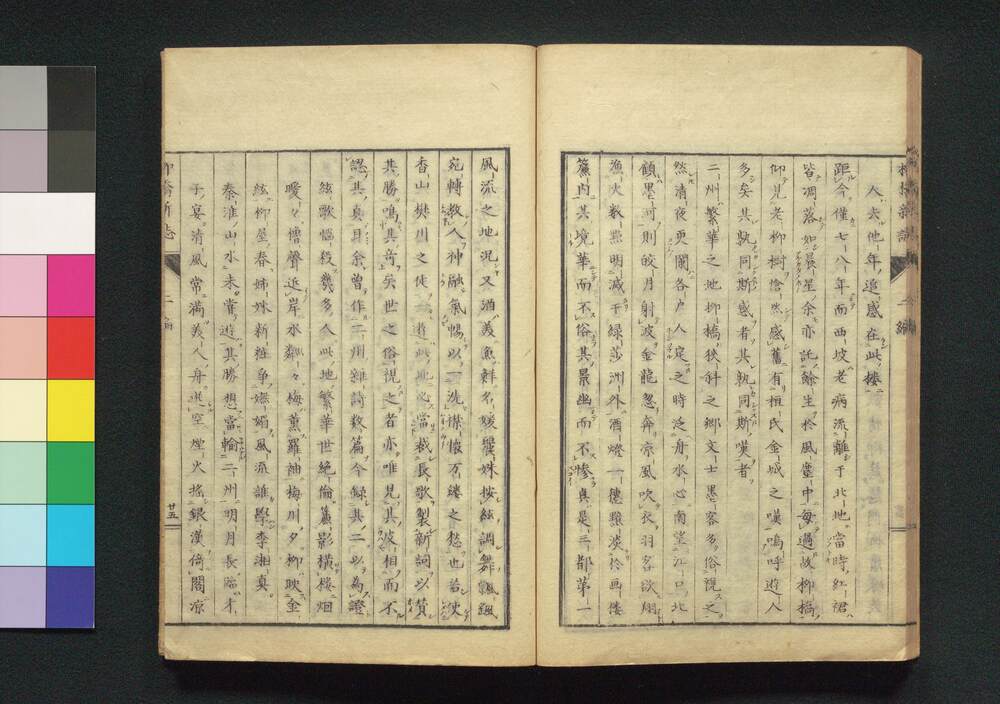 人去他年追感在此楼
距今僅七八年而西坡老病流離于北地當時紅裙
皆凋落如晨星余亦託餘生於風塵中毎過故柳橋
仰見老柳樹愴然感舊有桓氏金城之嘆嗚呼遊人
多矣其孰同斯感者其孰同斯嘆者
二州繁華之地柳橋狹斜之郷文士墨客多俗視之
然清夜更闌各戸人定之時泛舟水心南望
顧墨河則皎月射波金龍忽奔凉風吹衣羽客欲翔
漁火數點明滅于緑莎洲外酒燈一穗
簾内其境華而不俗其景幽而不惨真是三都第一
風流之地况又酒美魚鮮名媛
宛轉教人神融氣暢以一洗襟懷万縷之愁也若使
香山樊川之徒遊此地必當裁長歌製新詞以賛
其勝鳴其音矣世之俗視之者亦唯見其皮相而不
認其真耳余曽作二州雜詩数篇今録其二以為證
絃歌惱殺幾多人此地繁華世絶倫簾影横楼烟
曖々櫓聲近岸水粼々梅薫羅袖梅川夕柳映金
絃柳屋春姊妹新粧争嫵媚風流誰學李湘真
秦淮山水未嘗遊其勝想當輸二州明月長臨才
子宴清風常満美人舟 空煙火揺銀漢倚閣凉
柳橋新誌 二編 廿五